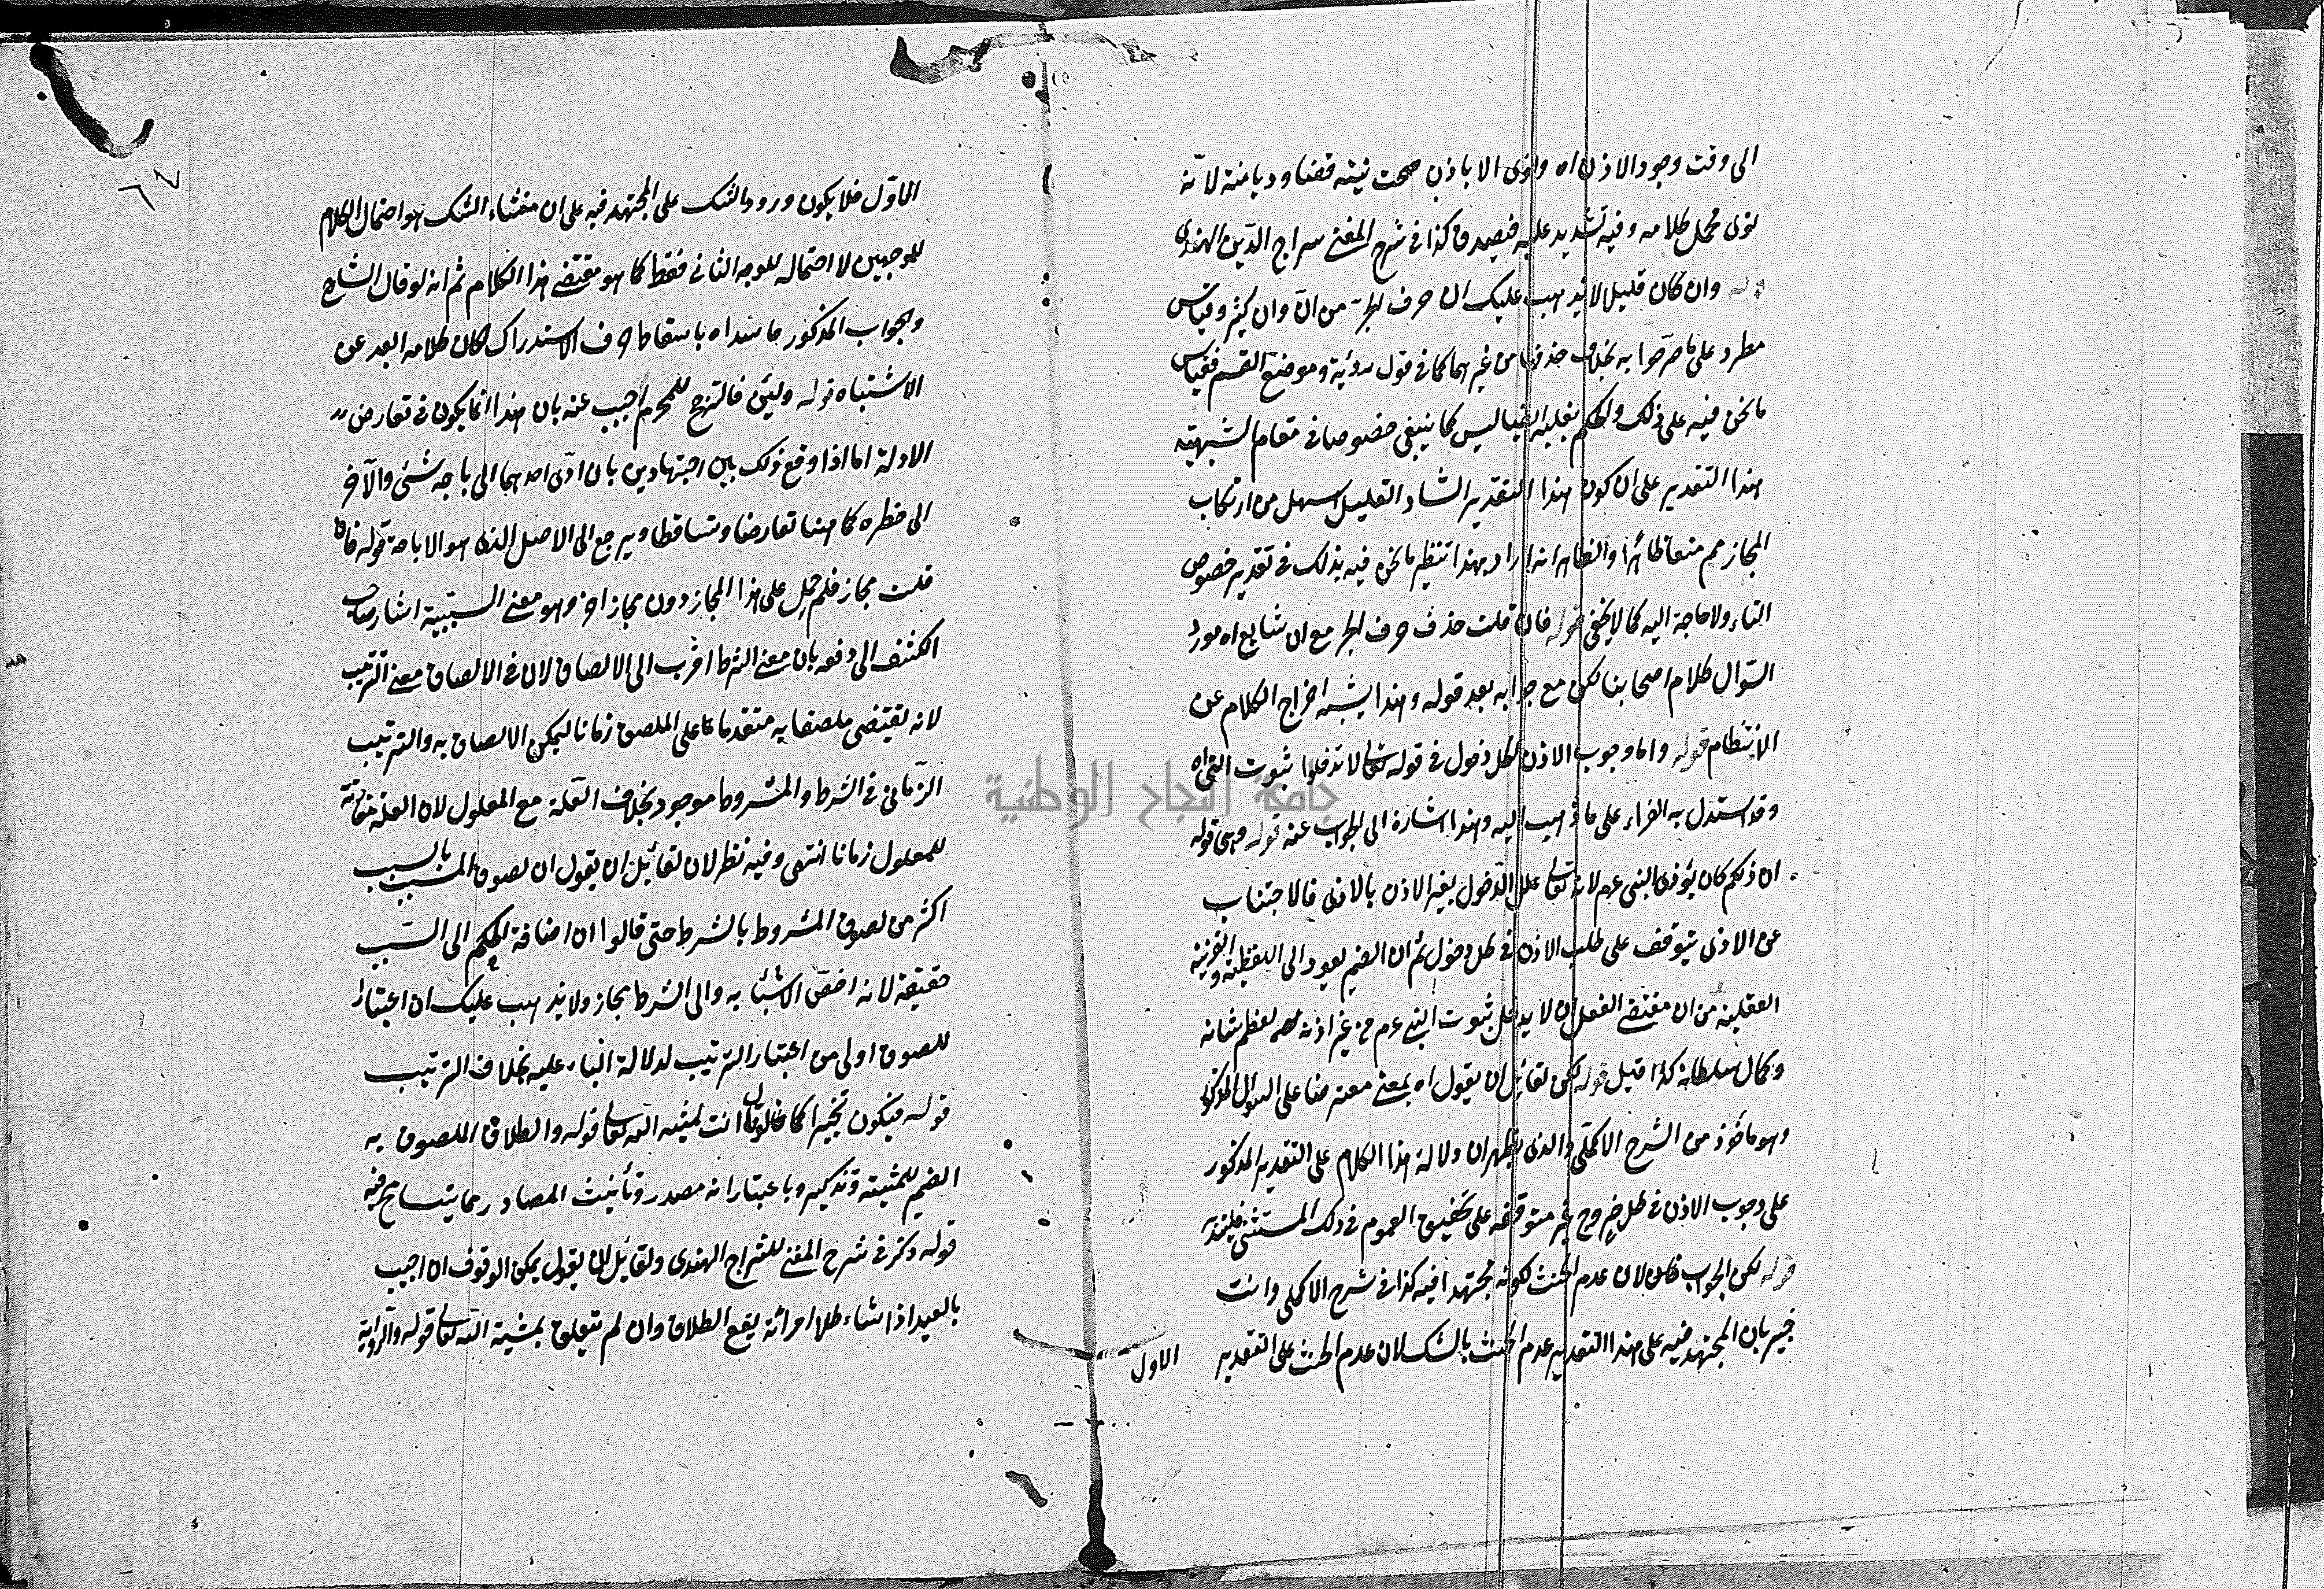 الى وقت وجود الاذن اه ولو نوى الا باذن صحت نيته قضا وديانته لانه
نوى محمل كلامه وفيه تشديد عليه فيصدق كذا في شرح المغني سراج الدين الهندي
قوله وان كان قليل لا يذهب عليك ان حرف الجر من ان وان كثير وقياس
مطرد على ما صرحوا به بخلاف حذفها من غيرهما كما في قول رؤبة وموضع القسم فقياس
ما نحن فيه على ذلك والحكم بقلته ليس كما ينبغي خصوصا في مقام الشبهية
هذا التقدير على ان كون هذا التقدير الشاد القليل اسهل من ارتكاب
المجاز مم منعا ظاهرا والظاهر انه اراد بهذا تنظير ما نحن فيه بذلك في تقدير خصوص
الباء ولا حاجة اليه كما لا يخفى قوله فان قلت حذف حرف الجر مع ان شايع اه مورد
السؤال كلام اصحابنا لكن مع جوابه بعد قوله وهذا يشبه اخراج الكلام عن
الانتظام قوله واما وجوب الاذن لكل دخول في قوله تعالى لا تدخلوا بيوت النبي اه
وقد استدل به الفراء على ما ذهب اليه وهذا اشارة الى الجواب عنه قوله وهي قوله
ان ذلكم كان يؤذي النبي عم لانه تعالى علل الدخول بغير الاذن بالاذى فالاجتناب
عن الاذى يتوقف على طلب الاذن في كل دخول ثم ان الضمير يعود الى اللفظية والقرينة
العقلية من ان مقتضى العقل ان لا يدخل بيوت النبي عم من غير اذنه لعظم شانه
وكمال سلطانه كذا قيل قوله لكن لقائل ان يقول اه يمعني معترضا على السؤال المذكور
وهو ماخوذ من الشرح الاكملي والذي يظهر ان دلالة هذا الكلام على التقدير المذكور
على وجوب الاذن في كل خروج غير متوقفة على تحقيق العموم في ذلك المستثنى فليتدبر
قوله لكن الجواب فان لان عدم الحنث لكونه مجتهدا فيه كذا في شرح الاكملي وانت
خبير بان المجتهد فيه على هذا التقدير عدم الحنث بالشك لان عدم الحنث على التقدير
الاول
٦٧
الماول فلا يكون ورود الشك على المجتهد فيه على ان منشاء الشك هو احتمال الكلام
للوجهين لا احتماله للوجه الثاني فقط كما هو مقتضى هذا الكلام ثم انه لو قال الشارح
والجواب المذكور ما سنداه باسقاط حرف الاستدراك لكان كلامه ابعد عن
الاشتباه قوله ولئن فالترجح للمحرم اجيب عنه بان هذا انما يكون في تعارض
الادلة اما اذا وقع ذلك بين اجتهادين بان ادى احدهما الى اباحة شئ والآخر
الى حظره كما هنا تعارضا وتساقطا ويرجع الى الاصل الذي هو الاباحة قوله فان
قلت مجاز فلم حمل على هذا المجاز دون مجاز اخر وهو معنى السببية اشار صاحب
الكشف الى دفعه بان معنى الشرط اقرب الى الالصاق لان في الالصاق معنى الترتيب
لانه يقتضي ملصقا به متقدما على الملصق زمانا ليمكن الالصاق به والترتيب
الزماني في الشرط والمشروط موجود بخلاف العلة مع المعلول لان العلة مقارنة
للمعلول زمانا انتهى وفيه نظر لان لقائل ان يقول ان لصوق المسبب بالسبب
اكثر من لصوق المشروط بالشرط حتى قالوا ان اضافة الحكم الى السبب
حقيقة لانه اخص الاشياء به والى الشرط مجاز ولا يذهب عليك ان اعتبار
للصوق اولى من اعتبار الترتيب لدلالة الباء عليه بخلاف الترتيب
قوله فيكون تخييرا كما قالوا انت بمشية الله تعالى قوله والطلاق الملصوق به
الضمير للمشية وتذكيره باعتبار انه مصدر وتأنيث المصادر مما يتسامح فيه
قوله ذكر في شرح المغني للسراج الهندي ولقائل ان يقول يمكن الوقوف ان اجيب
بالعبد اذا شاء طلاق امرأته يقع الطلاق وان لم يتعلق بمشية الله تعالى قوله والرواية